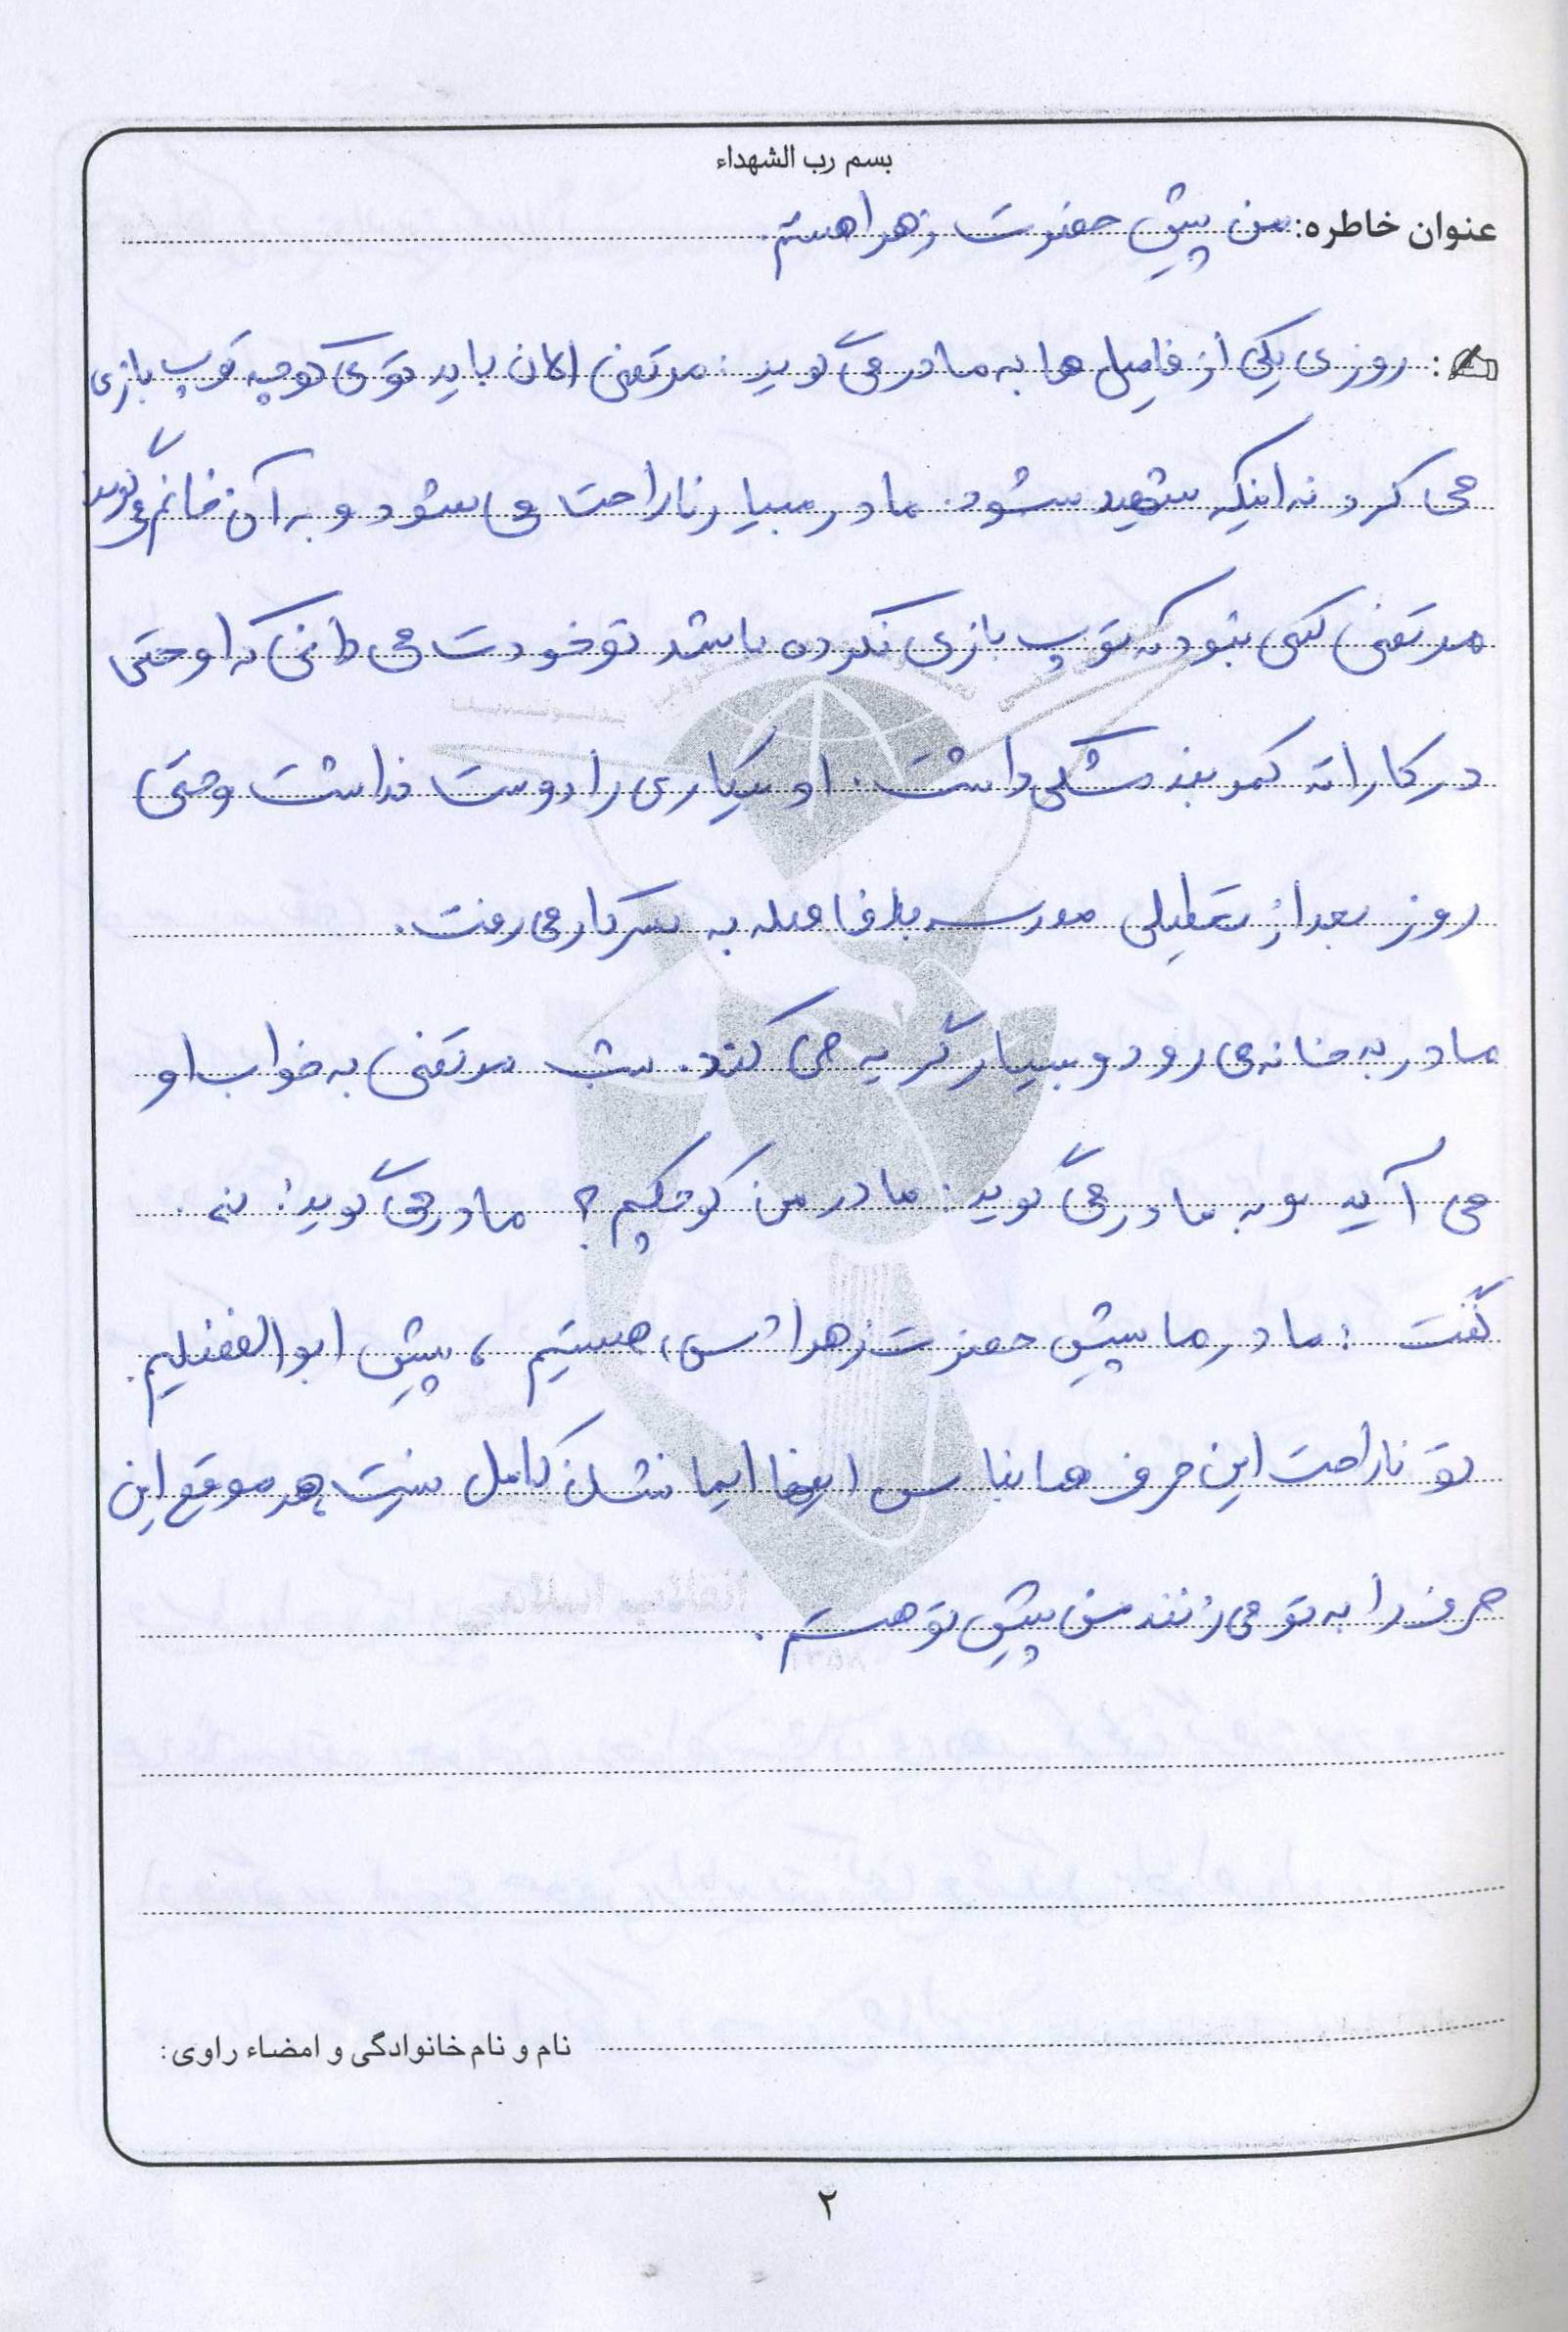 بسم رب الشهداء
عنوان خاطره: من پیش حضرت زهرا هستم.
: روزی یکی از فامیل ها به مادر می گوید: مرتضی الان باید توی کوچه توپ بازی
می کرد نه اینکه شهید شود. مادر بسیار ناراحت می شود و به آن خانم می گوید:
مرتضی کسی نبود که توپ بازی نکرده باشد تو خودت می دانی که او حتی
در کاراته کمربند مشکی داشت. او بیکاری را دوست نداشت و حتی
روز بعد از تعطیلی مدرسه بلافاصله به سر کار می رفت.
مادر به خانه می رود و بسیار گریه می کند. شب مرتضی به خواب او
می آید و به مادر می گوید: مادر من کوچکیم؟ مادر می گوید: نه.
گفت: مادر ما پیش حضرت زهرا (س) هستیم، پیش ابوالفضلیم.
تو ناراحت این حرف ها نباش اینها ایمانشان کامل نیست، هر موقع این
حرف را به تو می زنند من پیش تو هستم.
نام و نام خانوادگی و امضاء راوی:
۲